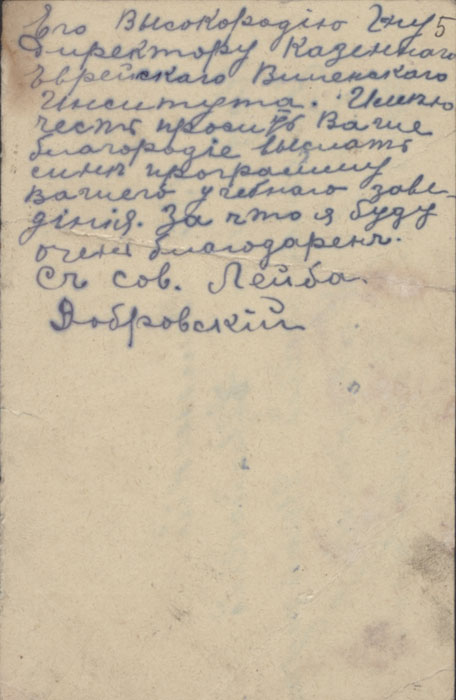 Его Высокородію Гну 5
Директору Казеннаго
Еврейскаго Виленскаго
Инситута. Имею
честь просить Ваше
благородіе выслать
симъ программу
вашего учебнаго заве-
дінія. За что я буду
очень благодаренъ.
Съ сов. Лейба.
Добровскій